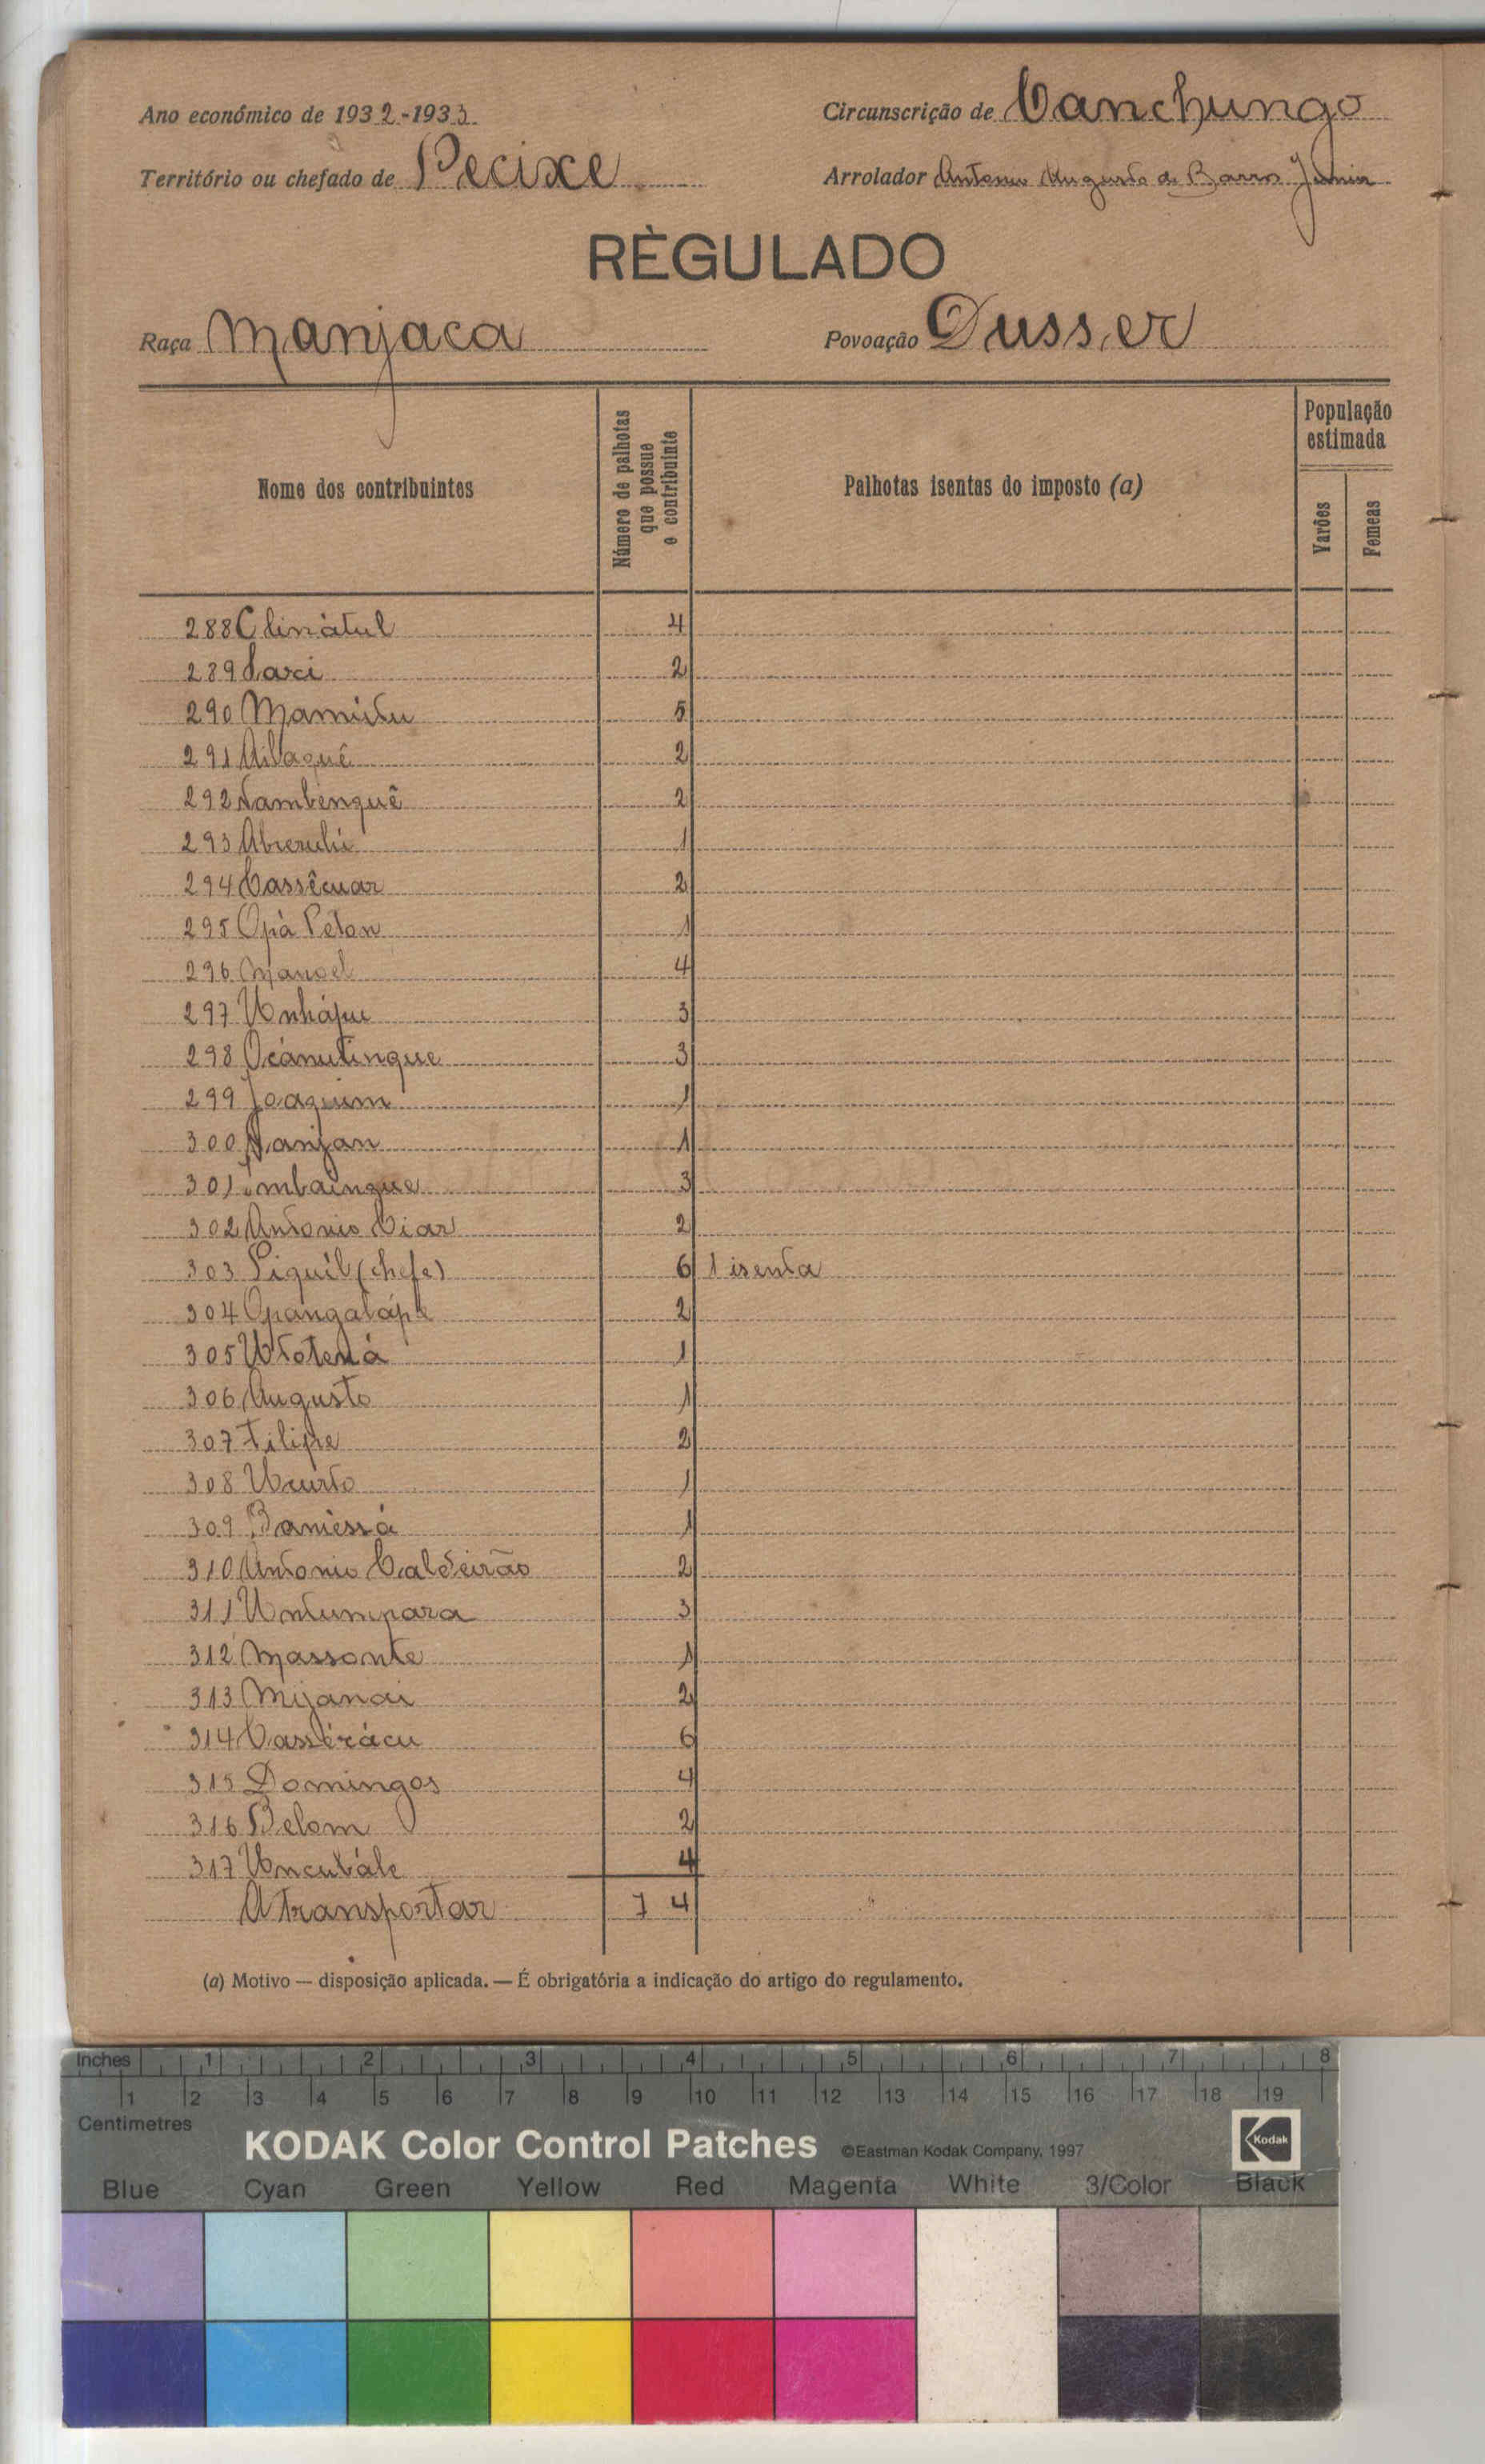 Ano económico de 1932-1933
Circunscrição de Canchungo
Território ou chefado de Pecixe
Arrolador Antonio Augusto de Barros Junior
RÈGULADO
Raça Manjaca
Povoação Dusser
Nome dos contribuintes
Número de palhotas que possue o contribuinte
Palhotas isentas do imposto (a)
População estimada
Varões
Femeas
288 Clinàtul 4
289 Laci 2
290 5
291 Ailaquê 2
292 Nambenquê 2
293 1
294 Cassêcuar 2
295 Opà Petan 1
296 Manoel 4
297 Unhápu 3
298 Ocànutingue 3
299 Joaquim 1
300 Nanjan 1
301 3
302 Antonio Ciar 2
303 Piquil (chefe) 6 1 isenta
304 2
305 Utotená 1
306 Augusto 1
307 Filipe 2
308 1
309 Banièssá 1
310 Antonio Caldeirão 2
311 Untumpara 3
312 Massonte 1
313 Mijanai 2
314 6
315 Domingos 4
316 Belom 2
317 4
A transportar 74
(a) Motivo — disposição aplicada. — É obrigatória a indicação do artigo do regulamento.
Inches 1 2 3 4 5 6 7 8
1 2 3 4 5 6 7 8 9 10 11 12 13 14 15 16 17 18 19
Centimetres
KODAK Color Control Patches ©Eastman Kodak Company, 1997 Kodak
Blue Cyan Green Yellow Red Magenta White 3/Color Black